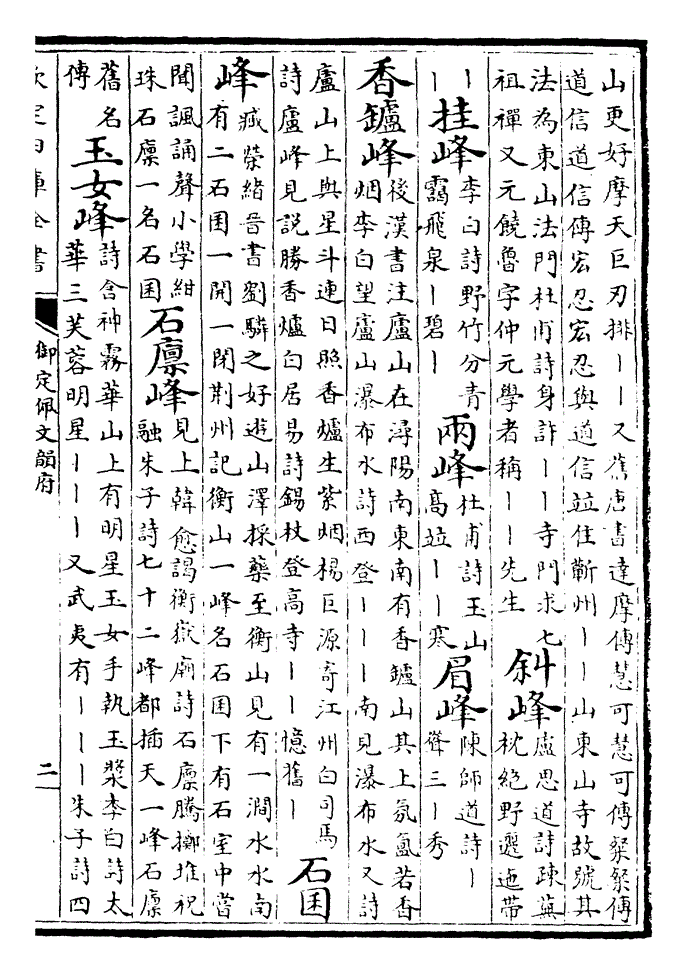 山更好摩天巨刃排丨丨又舊唐書達摩傳慧可慧可傳粲粲傳
道信道信傳宏忍宏忍與道信竝住蘄州丨丨山東山寺故號其
法為東山法門杜甫詩身許丨丨寺門求七
祖禪又元饒魯字仲元學者稱丨丨先生
斜峰
盧思道詩疎蕪
枕絕野邐迤帶
丨
丨
挂峰
李白詩野竹分青
靄飛泉丨碧丨
兩峰
杜甫詩玉山
高竝丨丨寒
眉峰
陳師道詩丨
聳三丨秀
香鑪峰
後漢書注廬山在潯陽南東南有香鑪山其上氛氳若香
烟李白望廬山瀑布水詩西登丨丨丨南見瀑布水又詩
廬山上與星斗連日照香爐生紫烟楊巨源寄江州白司馬
詩廬峰見説勝香爐白居易詩錫杖登高寺丨丨憶舊丨
石囷
峰
臧榮緒晉書劉驎之好遊山澤採藥至衡山見有一澗水水南
有二石囷一開一閉荆州記衡山一峰名石囷下有石室中嘗
聞諷誦聲小學紺
珠石廪一名石囷
石廪峰
見上韓愈謁衡嶽廟詩石廪騰擲堆祝
融朱子詩七十二峰都插天一峰石廪
舊名
傳
玉女峰
詩含神霧華山上有明星玉女手執玉漿李白詩太
華三芙蓉明星丨丨丨又武夷有丨丨丨朱子詩四
欽定四庫全書
御定佩文韻府
二